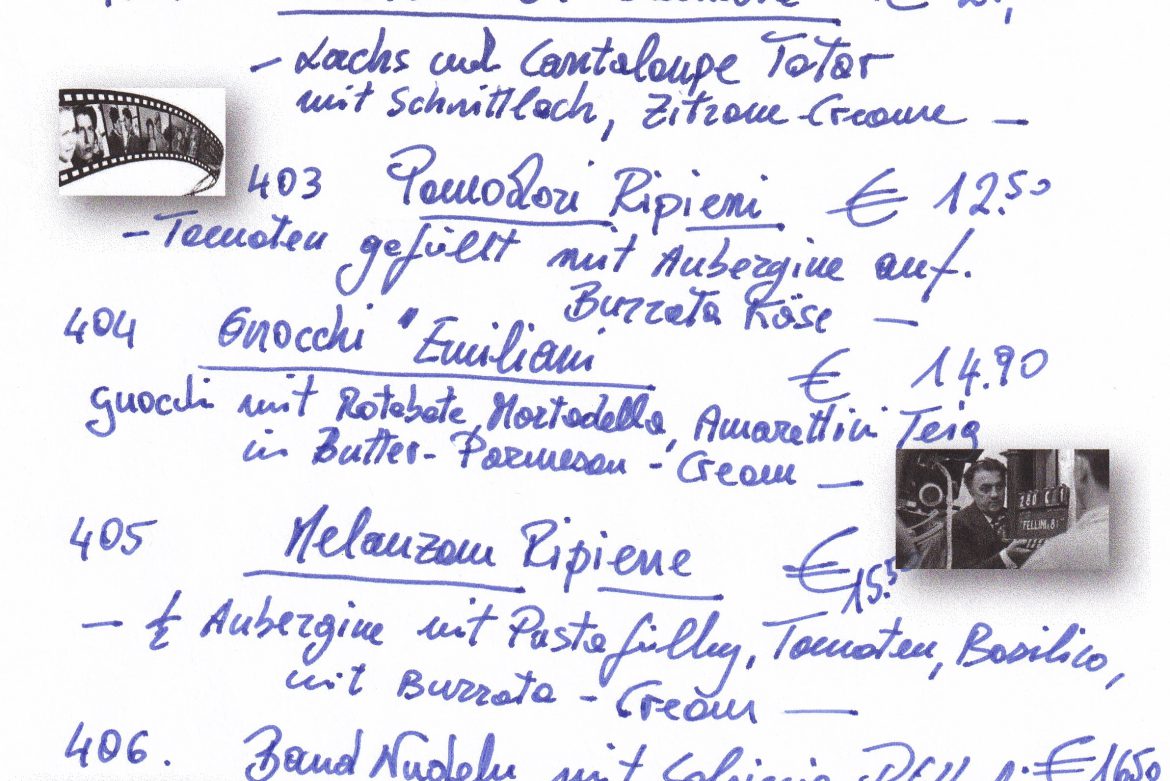 - Lachs und Cantaloupe Tatar
mit Schnittlach, Zitrone-Creame -
403 Pomodori Ripieni € 12.50
- Tomaten gefüllt mit Aubergine auf.
Burrata Käse -
404 Gnocchi "Emiliani € 14.90
gnocchi mit Rotebete, Mortadella, Amarettini Teig
in Butter-Parmesan-Cream -
405 Melanzane Ripiene € 15.5
- ½ Aubergine mit Pastafüllung, Tomaten, Basilico,
mit Burrata - Cream -
406. Band Nudeln mit € 1650
FELLINI 8